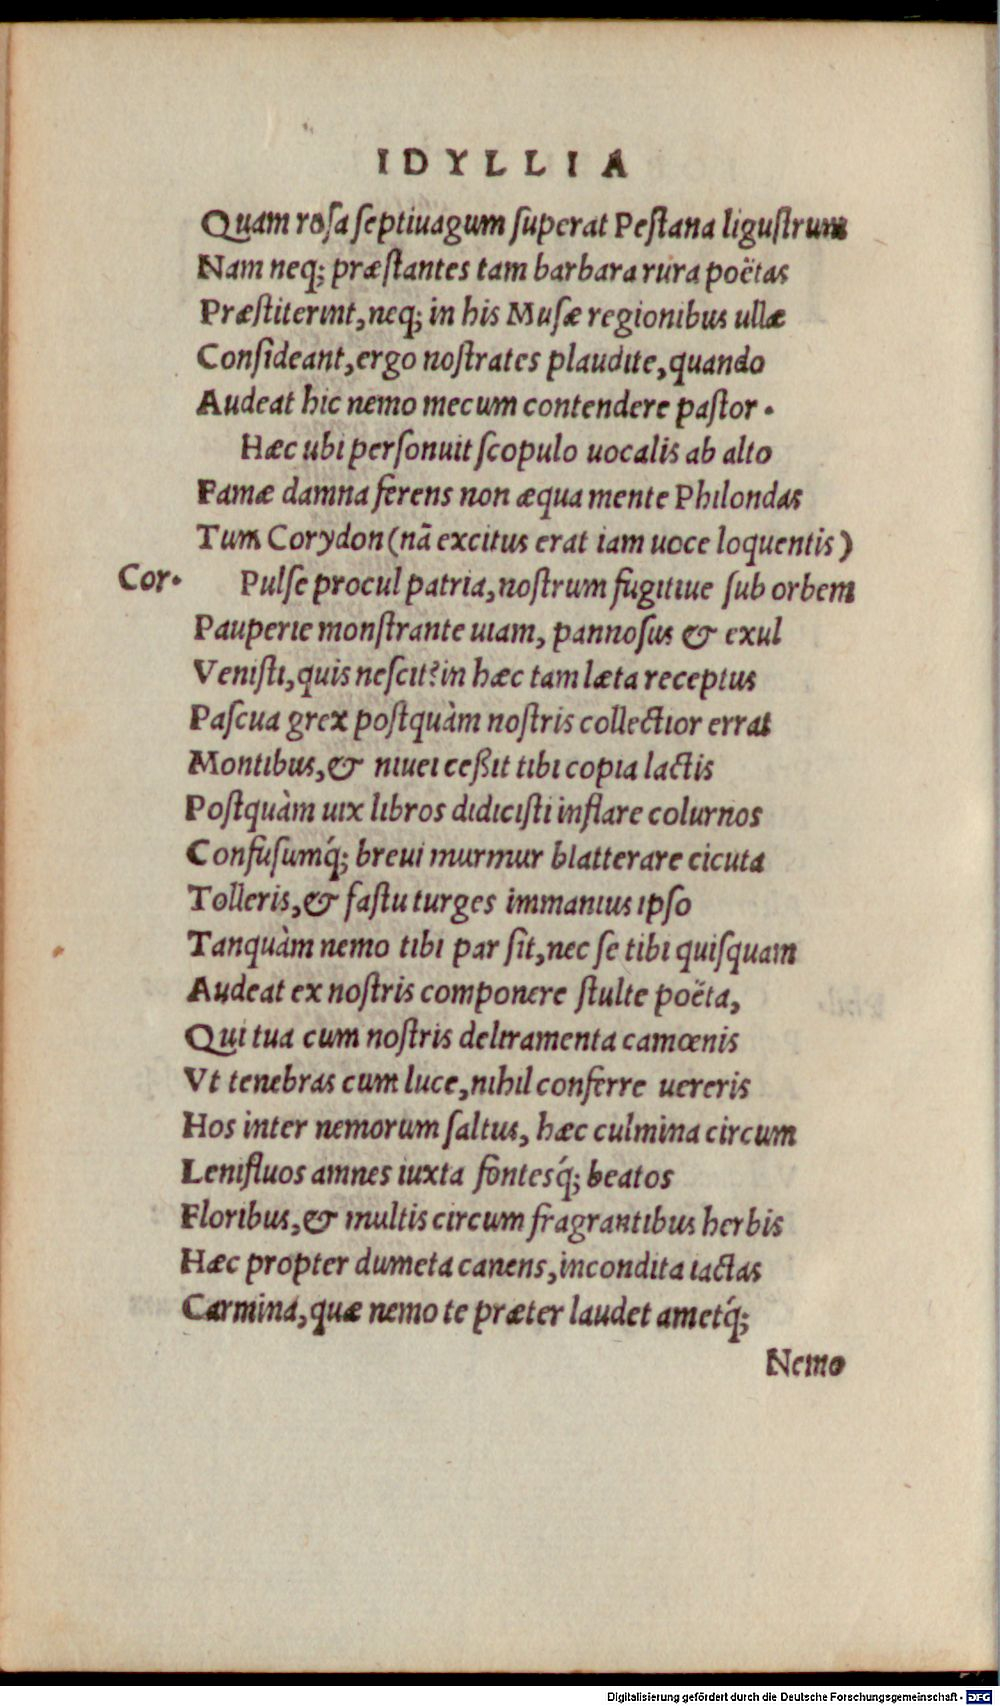 IDYLLIA
Quam roſa ſeptiuagum ſuperat Peſtana liguſtrum
Nam neq; præſtantes tam barbara rura poëtas
Præſtiterint, neq; in his Muſæ regionibus ullæ
Conſideant, ergo noſtrates plaudite, quando
Audeat hic nemo mecum contendere paſtor.
Hæc ubi perſonuit ſcopulo uocalis ab alto
Famæ damna ferens non æqua mente Philondas
Tum Corydon (nã excitus erat iam uoce loquentis)
Cor. Pulſe procul patria, noſtrum fugitiue ſub orbem
Pauperie monſtrante uiam, pannoſus & exul
Veniſti, quis neſcit? in hæc tam læta receptus
Paſcua grex poſtquàm noſtris collectior errat
Montibus, & niuei ceßit tibi copia lactis
Poſtquàm uix libros didiciſti inflare colurnos
Confuſumq́; breui murmur blatterare cicuta
Tolleris, & faſtu turges immanius ipſo
Tanquàm nemo tibi par ſit, nec ſe tibi quiſquam
Audeat ex noſtris componere ſtulte poëta,
Qui tua cum noſtris deliramenta camœnis
Vt tenebras cum luce, nihil conferre uereris
Hos inter nemorum ſaltus, hæc culmina circum
Lenifluos amnes iuxta fontesq́; beatos
Floribus, & multis circum fragrantibus herbis
Hæc propter dumeta canens, incondita iactas
Carmina, quæ nemo te præter laudet ametq́;
Nemo
Digitalisierung gefördert durch die Deutsche Forschungsgemeinschaft - DFG